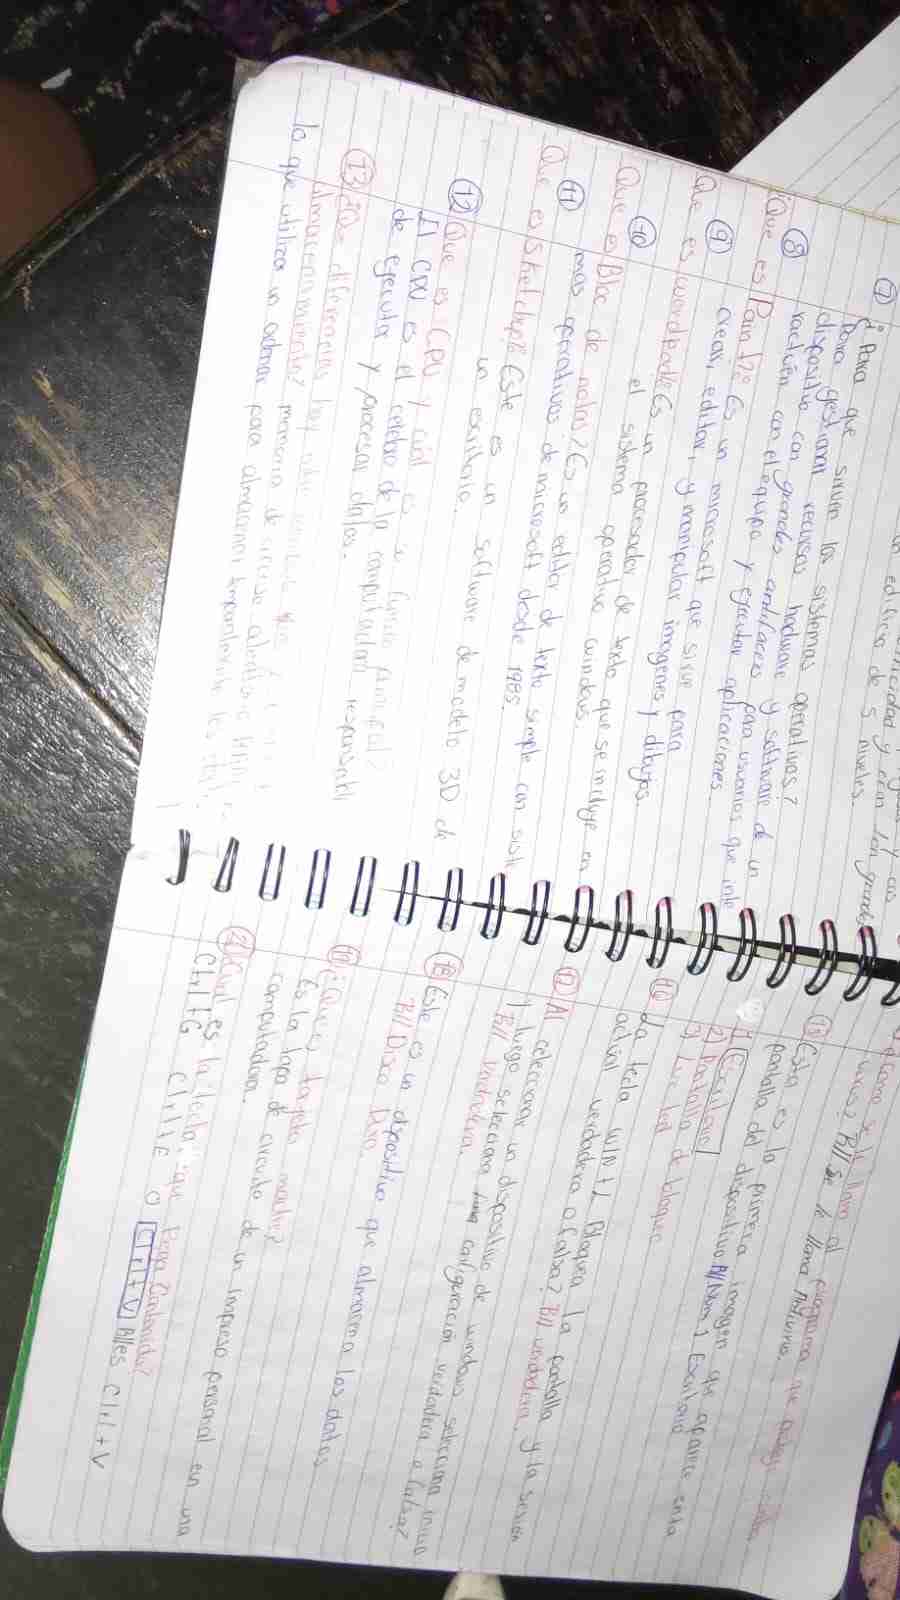 un edificio de 5 niveles.
⑦ ¿Para que sirven los sistemas operativos?
Para gestionar recursos hadware y software de un
dispositivo con grandes antifaces para usuarios que inte
ractuen con el equipo y ejecutar aplicaciones.
⑧
Que es Paint? Es un microsoft que sirve para
crear, editar, y manipular imagenes y dibujos
⑨
Que es wordpad? Es un procesador de texto que se incluye en
el sistema operativo windows.
⑩
Que es Bloc de notas? Es un editor de texto simple con siste
mas operativos de microsoft desde 1985.
⑪
Que es Sketchup? Este es un software de modelo 3D de
un escritorio.
⑫ Que es CPU y cuál es su función principal?
El CPU es el cerebro de la computadora responsable
de ejecutar y procesar datos.
⑬ ¿Que diferencias hay entre
almacenamiento? memoria de acceso aleatorio
lo que utiliza un ordenar para almacenar temporalmente los
como se le llama al programa que protege contra
virus? R// Se le llama Antivirus.
⑮ Esta es la primera imagen que aparece en la
pantalla del dispositivo. R// Num 1 Escritorio
1) Escritorio
2) Pantalla de bloqueo
3) Luz led
⑯ La tecla WIN + L Bloquea la pantalla y la sesión
actual verdadera o falsa? R// verdadera.
⑰ Al seleccionar un dispositivo de windows selecciona inicio
y luego selecciona configeración verdadera o falsa?
R// Verdadera.
⑱ Este es un dispositivo que almacena los datos
R// Disco Duro.
⑲ ¿Que es tarjeta madre?
Es la tapa de circuito de un impreso personal en una
computadora.
⑳ Cual es la tecla que Pega Contenido?
Ctrl + G Ctrl + E o Ctrl + V R// es Ctrl + V